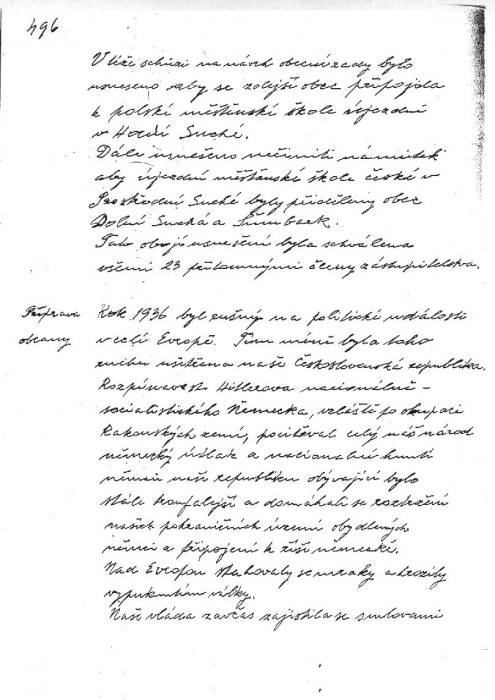 496
V téže schůzi na návrh obecní rady bylo
usneseno aby se zdejší obec připojila
k polské měšťanské škole újezdní
v Horní Suché.
Dále usnešeno nečiniti námitek
aby újezdní měšťanské škole české v
Prostřední Suché byly přiděleny obce
Dolní Suchá a Šumbark.
Tato obojí usnesení byla schválena
všemi 23 přítomnými členy zastupitelstva.
Příprava
obrany
Rok 1936 byl rušný na politické události
v celé Evropě. Tím méně byla toho
ruchu ušetřena naše Československá republika.
Rozpínavost Hitlerova nacionálně-
socialistického Německa, zvláště po okupaci
Rakouských zemí, pociťoval celý náš národ
německý útlak a nacionální hnutí
němců naši republiku obývající bylo
stále troufalejší a domáhali se roztržení
našich pohraničních území obydlených
němci a připojení k říši německé.
Nad Evropou stahovaly se mraky a hrozily
vypuknutím války.
Naše vláda zavčas zajistila se smlouvami